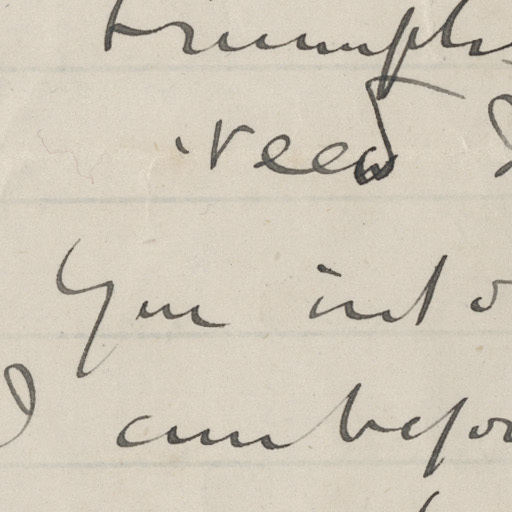 triumph
need I
you into
I am befo